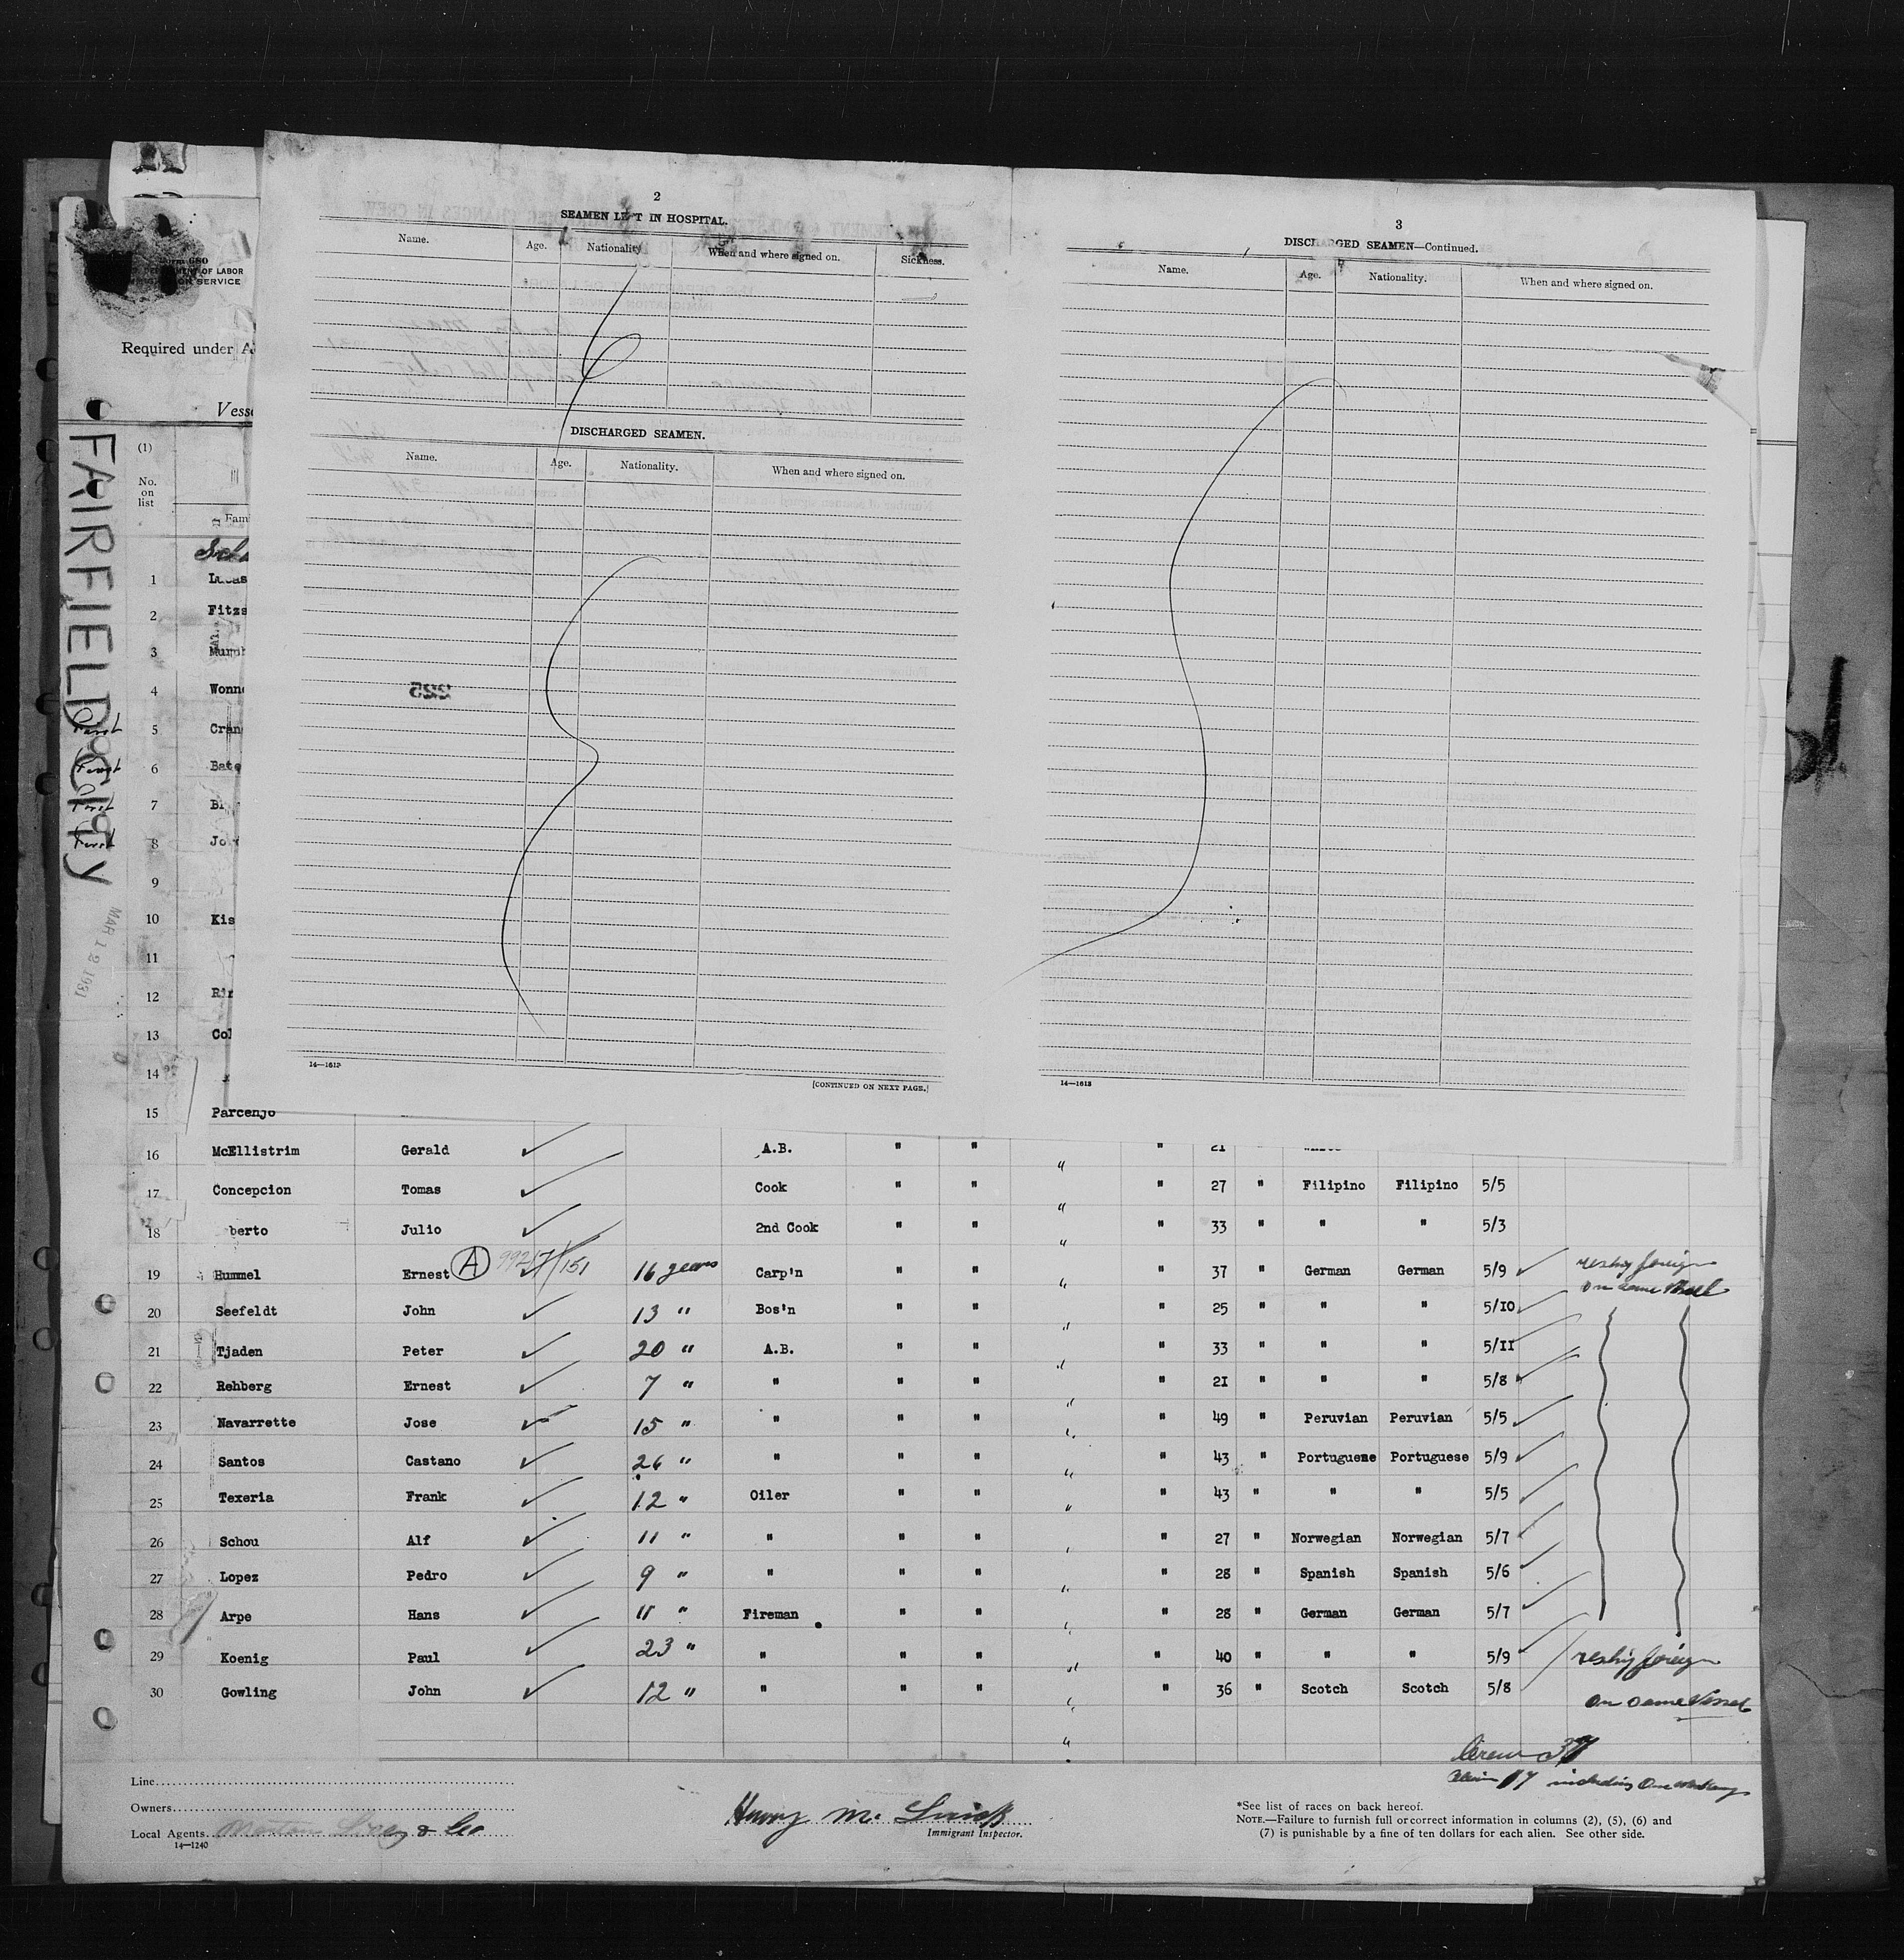 2
SEAMEN LEFT IN HOSPITAL.
Name. Age. Nationality When and where signed on. Sickness.
DISCHARGED SEAMEN.
Name. Age. Nationality. When and where signed on.
225
14—1613
[CONTINUED ON NEXT PAGE.]
3
DISCHARGED SEAMEN—Continued.
Name. Age. Nationality. When and where signed on.
14—1613
Form 680
DEPARTMENT OF LABOR
IMMIGRATION SERVICE
Required under A
Vess
FAIRFIELD City
MAR 12 1931
(1)
No.
on
list
Fam
1 Lucas
2 Fitzs
3 Murph
4 Wonne
First 5 Cran
First 6 Bate
First 7 B
First 8 Jo
9
10 Kis
11
12 Rin
13 Col
14
15 Parcenjo
16 McEllistrim Gerald A.B. " " " " 21
17 Concepcion Tomas Cook " " " " 27 " Filipino Filipino 5/5
18 berto Julio 2nd Cook " " " " 33 " " " 5/3
19 Hummel Ernest A 151 16 years Carp'n " " " " 37 " German German 5/9 reship foreign
on same Vessel
20 Seefeldt John 13 " Bos'n " " " " 25 " " " 5/10
21 Tjaden Peter 20 " A.B. " " " " 33 " " " 5/11
22 Rehberg Ernest 7 " " " " " " 21 " " " 5/8
23 Navarrette Jose 15 " " " " " " 49 " Peruvian Peruvian 5/5
24 Santos Castano 26 " " " " " " 43 " Portuguese Portuguese 5/9
25 Texeria Frank 12 " Oiler " " " " 43 " " " 5/5
26 Schou Alf 11 " " " " " " 27 " Norwegian Norwegian 5/7
27 Lopez Pedro 9 " " " " " " 28 " Spanish Spanish 5/6
28 Arpe Hans 11 " Fireman " " " " 28 " German German 5/7
29 Koenig Paul 23 " " " " " " 40 " " " 5/9 reship foreign
30 Gowling John 12 " " " " " " 36 " Scotch Scotch 5/8 on same Vessel
Crew 37
17 including One
Line
Owners
Local Agents & Co
14—1240
Harry M.
Immigrant Inspector.
*See list of races on back hereof.
NOTE.—Failure to furnish full or correct information in columns (2), (5), (6) and
(7) is punishable by a fine of ten dollars for each alien. See other side.